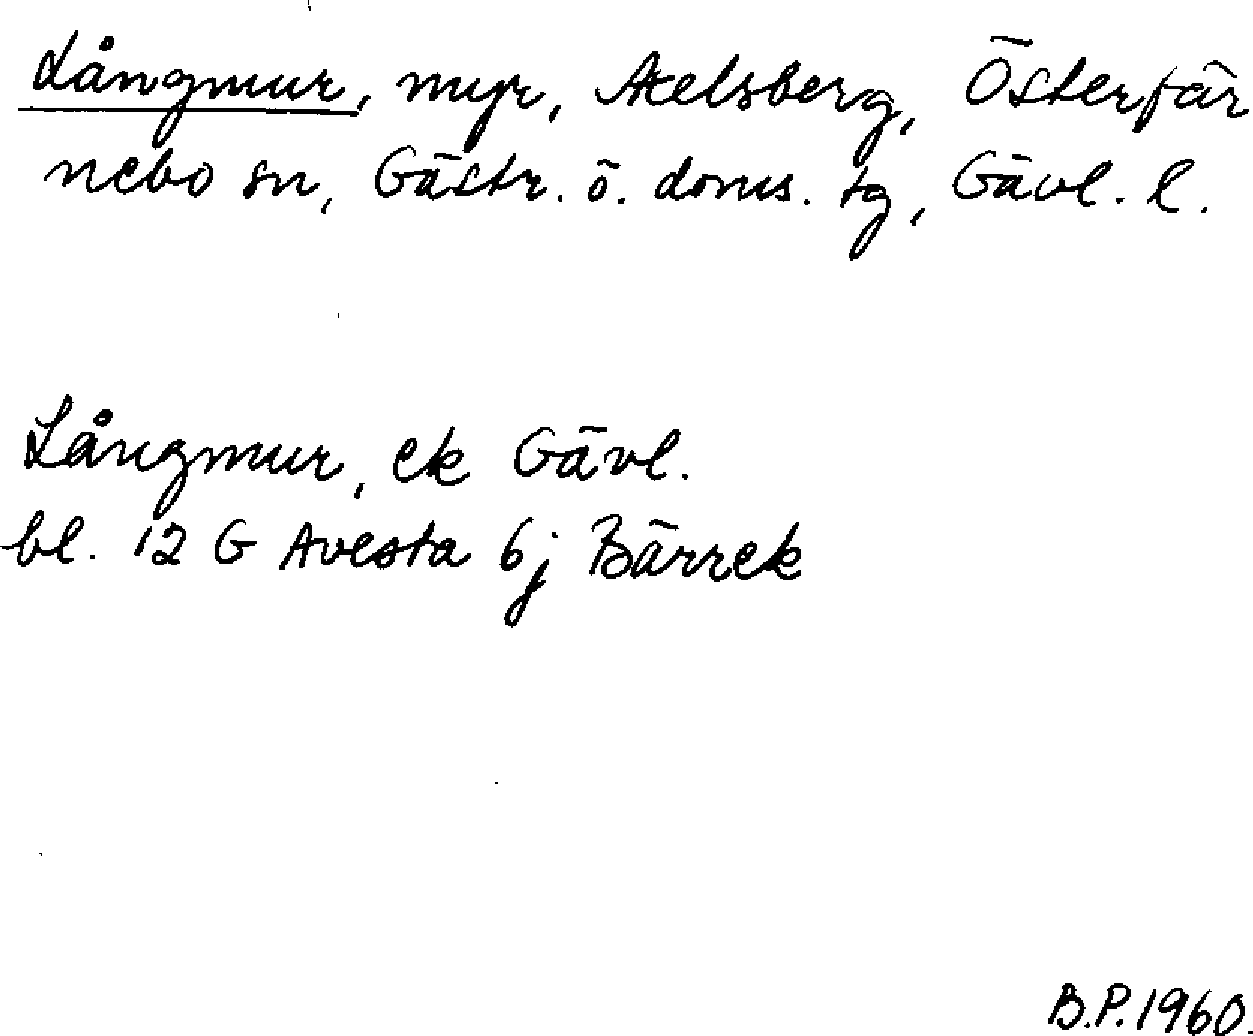 Långmur, myr, Axelsberg, Österfär
nebo sn, Gästr. ö. doms. tg, Gävl. l.
Långmur, ek Gävl.
bl. 12 G Avesta 6j Bärrek
B.P. 1960.